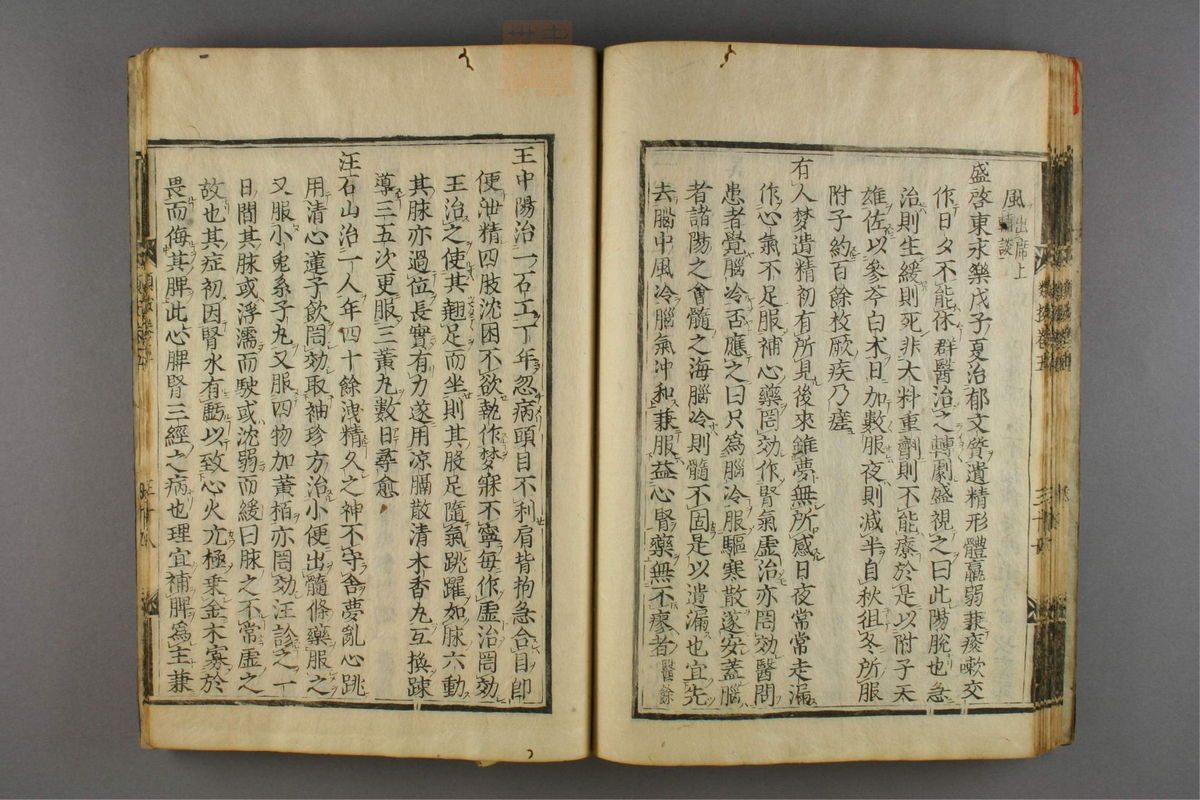 風 出席上
輔談
盛啓東永樂戊子夏治郁文贄遺精形體羸弱兼痰嗽交
作日夕不能休群醫治之轉劇盛視之曰此陽脫也急
治則生緩則死非大料重劑則不能療於是以附子天
雄佐以參苓白朮日加數服夜則減半自秋徂冬所服
附子約百餘枚厥疾乃瘥
有人梦遺精初有所見後來雖夢無所感日夜常常走漏
作心氣不足服補心藥罔効作腎氣虛治亦罔効醫問
患者覺腦冷否應之曰只為腦冷服驅寒散遂安蓋腦
者諸陽之會髓之海腦冷則髓不固是以遺漏也宜先
去腦中風冷腦氣冲和兼服益心腎藥無不瘳者 醫餘
王中陽治一石工丁年忽病頭目不利肩背拘急合目卽
便泄精四肢沈困不欲執作梦寐不寧每作虛治罔効
王治之使其翹足而坐則其股足隨氣跳躍如脉六動
其脉亦過位長實有力遂用凉膈散清木香丸互換踈
導三五次更服三黃丸數日尋愈
汪石山治一人年四十餘洩精久之神不守舍夢亂心跳
用清心蓮子飲罔効取袖珍方治小便出髓條藥服之
又服小兎系子丸又服四物加黃栢亦罔効汪診之一
日間其脉或浮濡而駛或沈弱而緩曰脉之不常虛之
故也其症初因腎水有虧以致心火亢極乗金木寡於
畏而侮其脾此心脾腎三經之病也理宜補脾為主兼